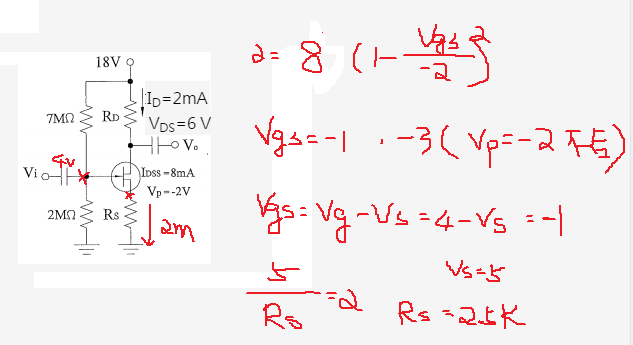 18V
I_D=2mA
7MΩ R_D V_DS=6 V
V_o
4v
Vi I_DSS=8mA
V_P=-2V
2MΩ Rs 2m
2=8(1-Vgs/-2)²
Vgs=-1 , -3(Vp=-2不合)
Vgs=Vg-Vs=4-Vs=-1
Vs=5
5/Rs=2 Rs=2.5K